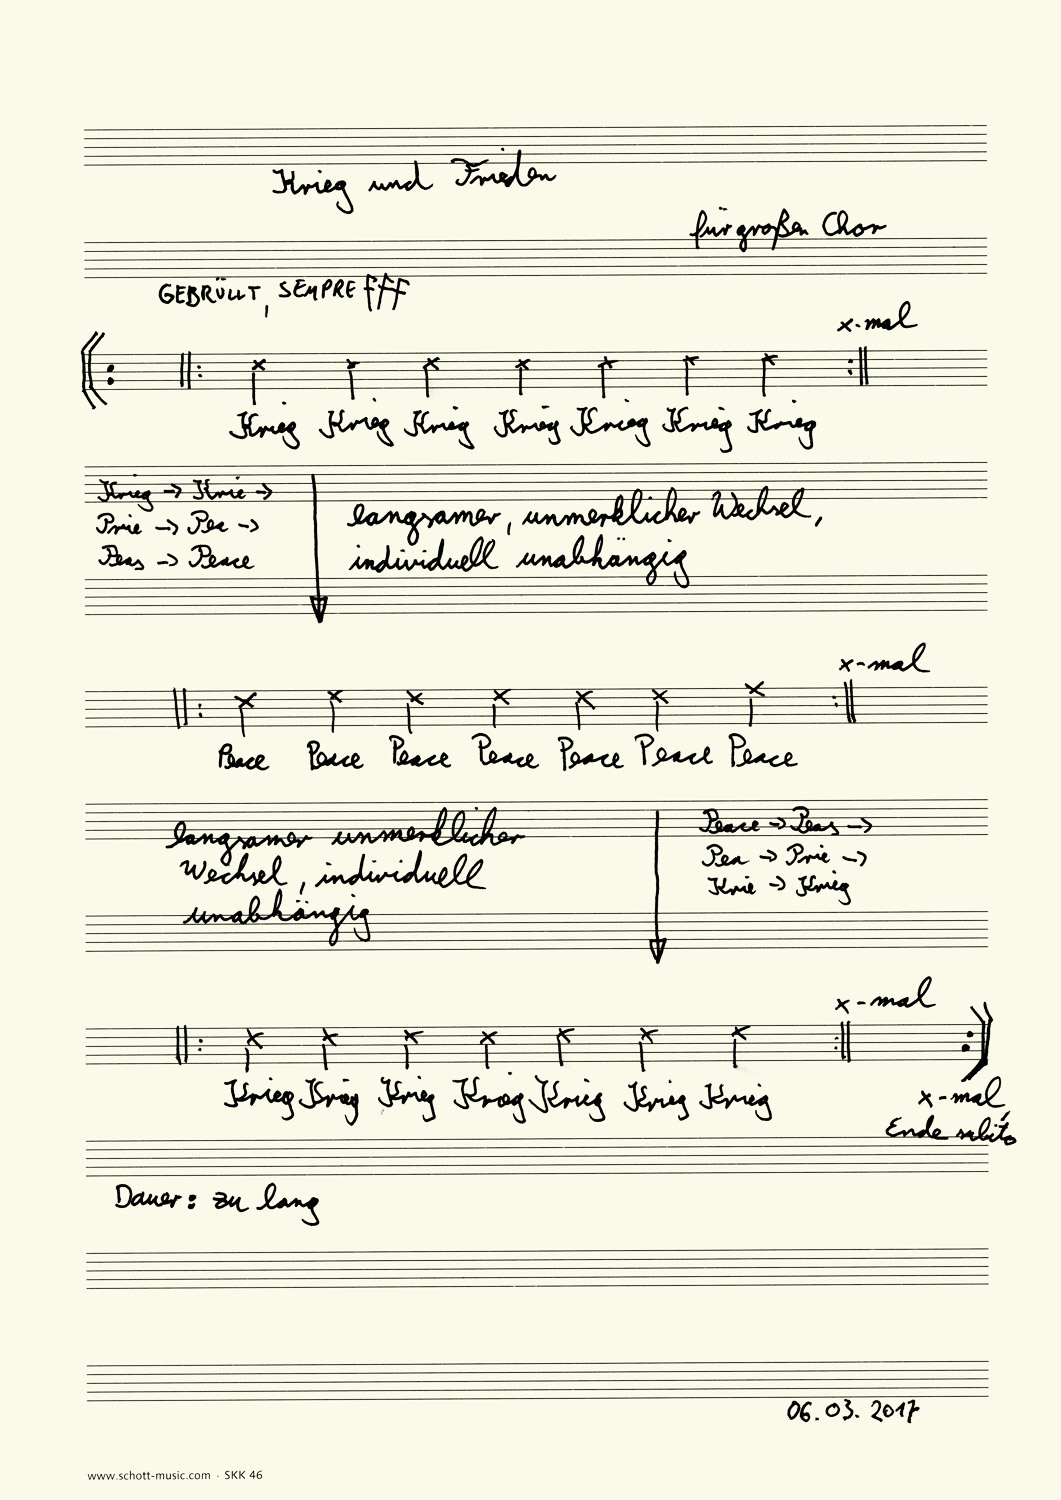 Krieg und Frieden
für großen Chor
GEBRÜLLT, SEMPRE fff
x-mal
Krieg Krieg Krieg Krieg Krieg Krieg Krieg
Krieg -> Krie ->
Prie -> Pea ->
Peas -> Peace
langsamer, unmerklicher Wechsel,
individuell unabhängig
x-mal
Peace Peace Peace Peace Peace Peace Peace
langsamer unmerklicher
Wechsel, individuell
unabhängig
Peace -> Peas ->
Pea -> Prie ->
Krie -> Krieg
x-mal
Krieg Krieg Krieg Krieg Krieg Krieg Krieg
x-mal,
Ende subito
Dauer: zu lang
06.03.2017
www.schott-music.com · SKK 46